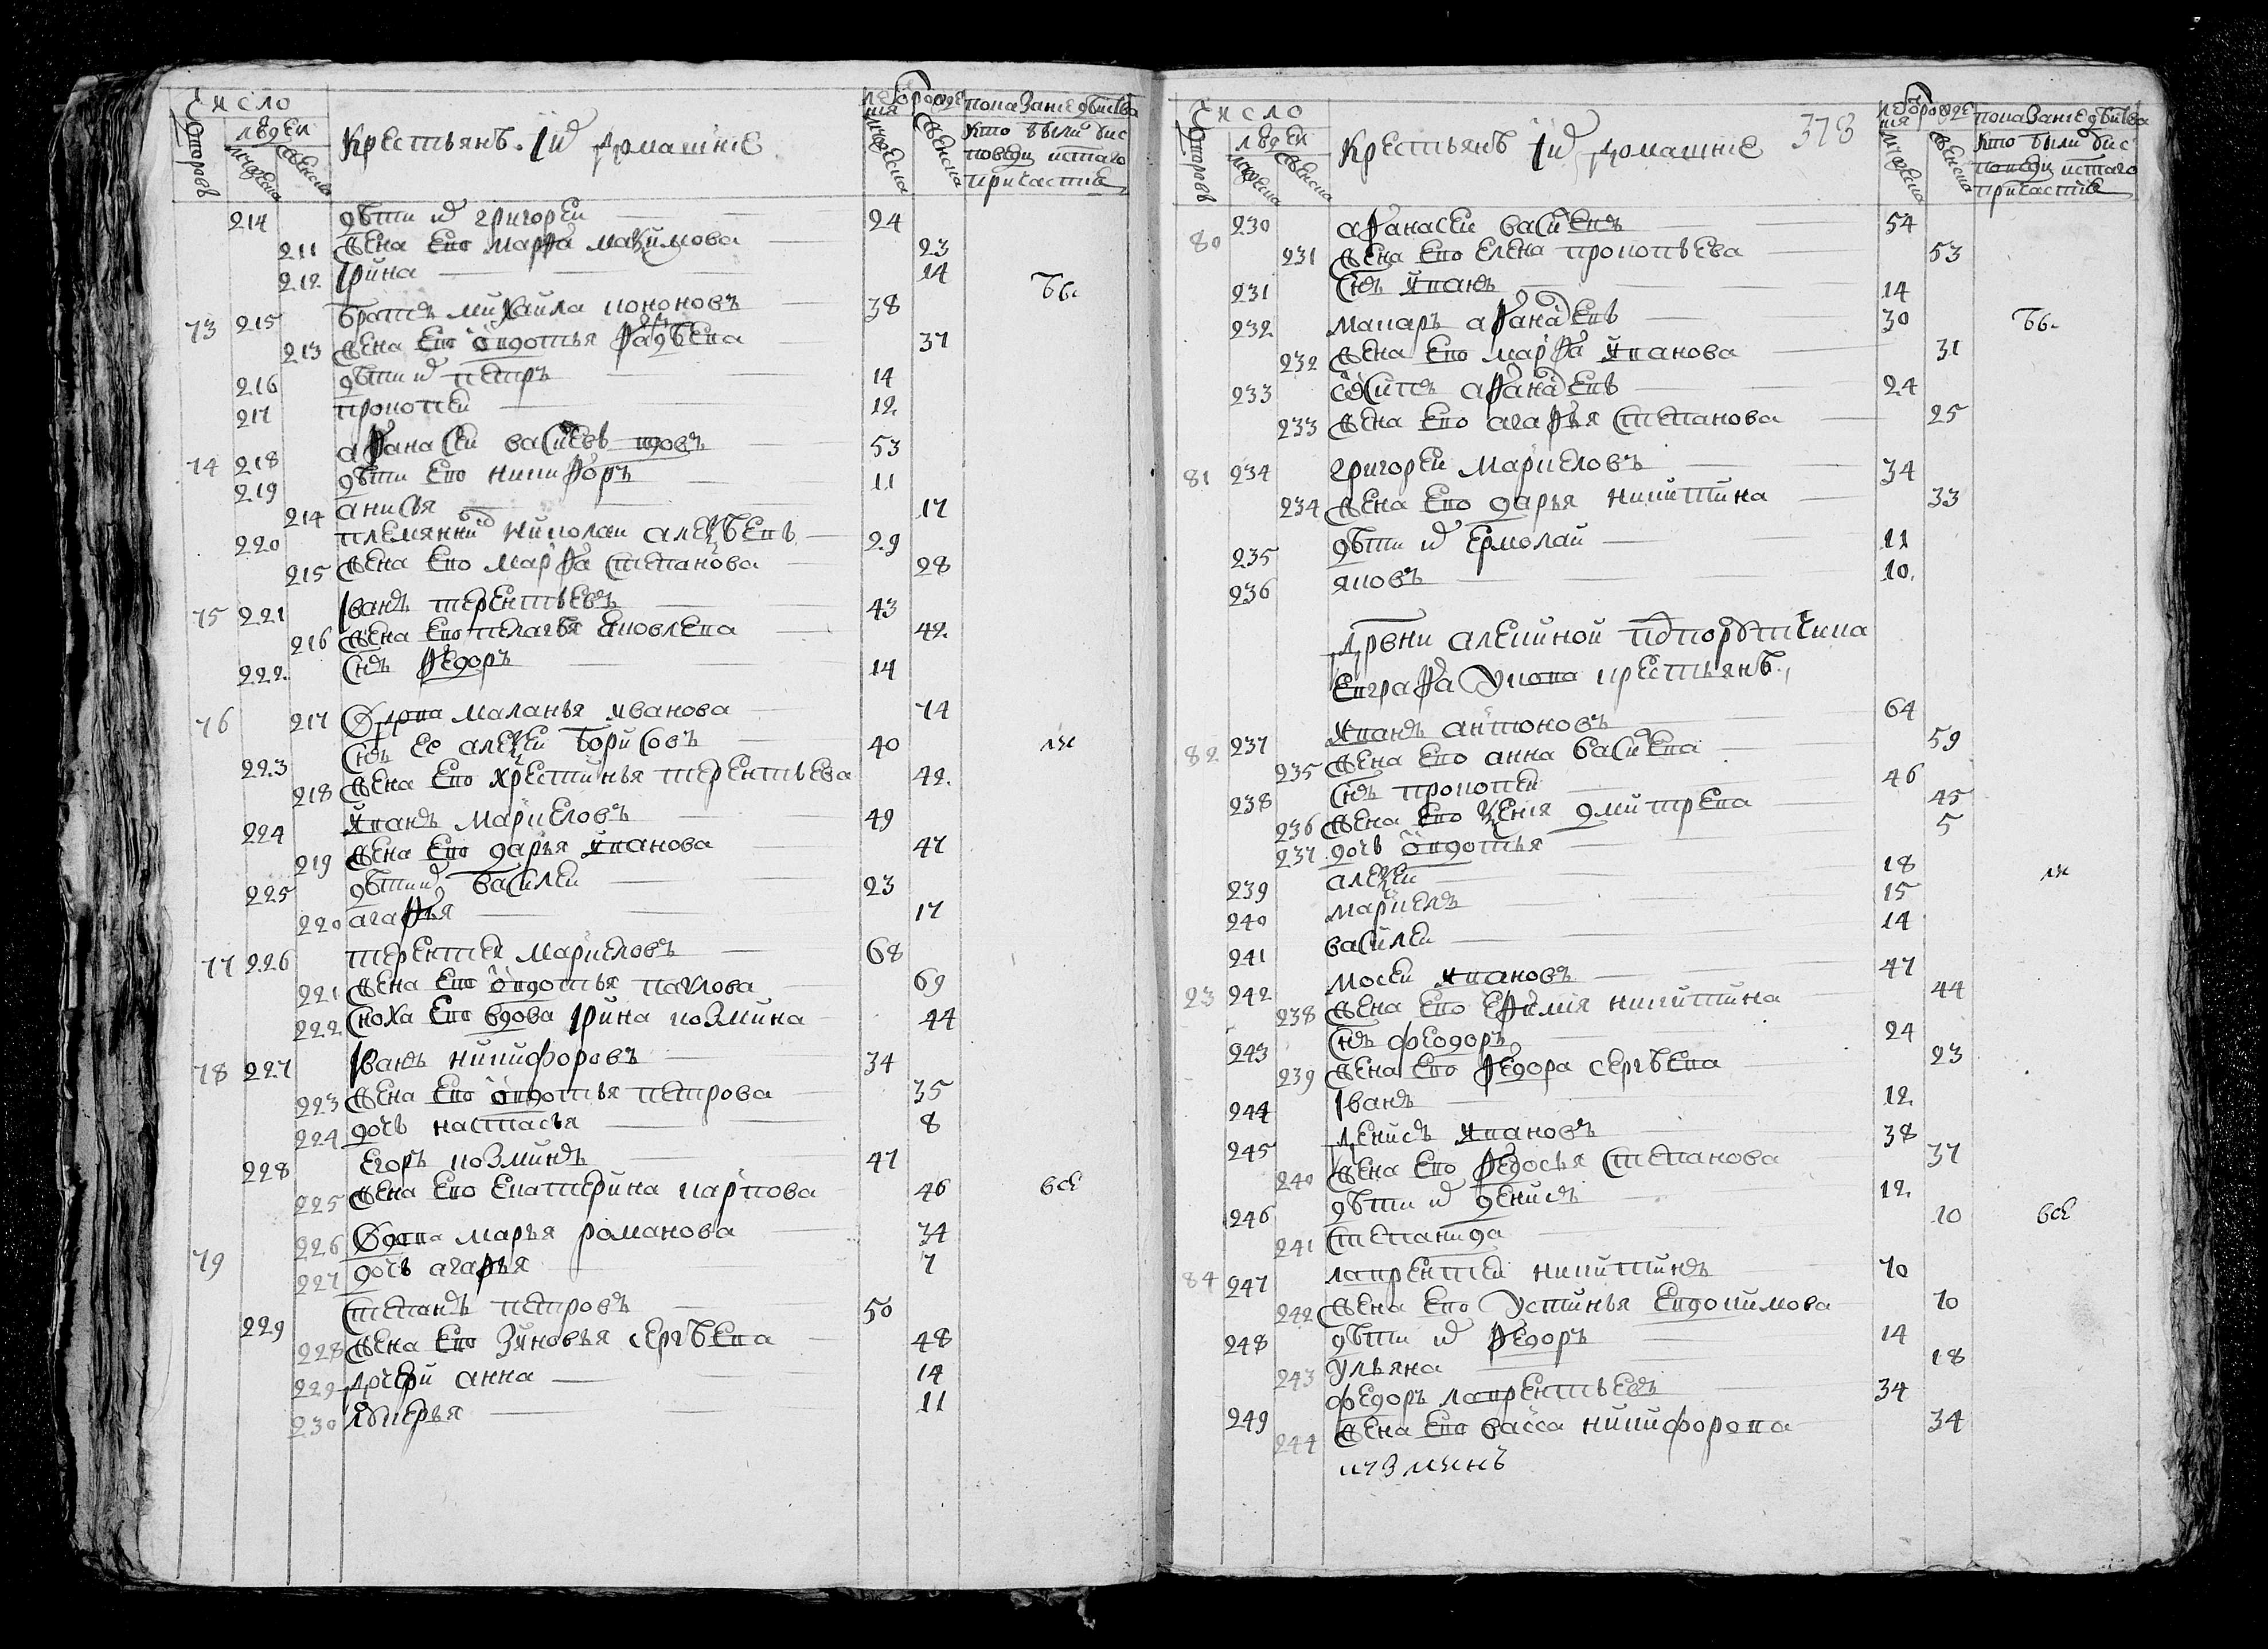 Число
дворовъ
людей
мужеска
женска
Крестьянъ. Iихъ домашние
лѣта ѿ рожде
ния
мужеска
женска
показание дѣиства
кто были ѹ ис
поведи истаго
причастия
214 дѣти ихъ григореи 24
211 жена ево марфа маѯимова 23
212 Iрина 14
73 215 братъ михаила кононовъ 38
213 жена ево ѡвдотья фадѣева 37
216 дѣти ихъ петръ 14
217 прокопеи 12
74 218 афанасеи васильевъ вдовъ 53
219 дѣти ево никифоръ 11
214 анисья 17
220 племянникъ николаи алеѯѣевъ 29
215 жена ево марфа степанова 28
75 221 Iванъ терентьевъ 43
216 жена ево пелагѣя яковлева 42
222 снъ ѳедоръ 14
76 217 Вдова маланья иванова 74
223 снъ ее алеѯеи борисовъ 40
218 жена ево хрестинья терентьева 42
224 иванъ маркеловъ 49
219 жена ево дарья иванова 47
225 дѣти ихъ василеи 23
220 агафья 17
77 226 терентеи маркеловъ 68
221 жена ево ѡвдотья павлова 69
222 сноха ево вдова Iрина козмина 44
78 227 Iванъ никифоровъ 34
223 жена ево ѡвдотья петрова 35
224 дочь настасья 8
228 егоръ козминъ 47
225 жена ево екатерина карпова 46 все
79 226 Вдова марья романова 34
227 дочь агафья 7
229 степанъ петровъ 50
228 жена ево зиновья сергѣева 48
229 дочери анна 14
230 лукерья 11
Число
дворовъ
людей
мужеска
женска
Крестьянъ Iихъ домашние
378
лѣта ѿ рожде
ния
мужеска
женска
показание дѣиства
кто были ѹ ис
поведи истаго
причастия
80 230 афанасеи васильевъ 54
231 жена ево елена прокопьева 53
231 снъ иванъ 14
232 макаръ афанасьевъ 30
232 жена ево марфа иванова 31
233 ѡсипъ афанасьевъ 24
233 жена ево агафья степанова 25
81 234 григореи маркеловъ 34
234 жена ево дарья никитина 33
235 дѣти ихъ ермолаи 11
236 яковъ 10
Дрвни алекиной подпорутчика
евграфа укова крестьянъ
82 237 иванъ антоновъ 64
235 жена ево анна васильева 59
238 снъ прокопеи 46
236 жена ево ѯения дмитрева 45
237 дочь ѡвдотья 5
239 алеѯеи 18
240 маркелъ 15
241 василеи 14
23 242 мосеи ивановъ 47
238 жена ево ефимия никитина 44
243 снъ феодоръ 24
239 жена ево ѳедора сергѣева 23
244 Iванъ 12
245 денисъ ивановъ 38
240 жена ево ѳедосья степанова 37
246 дѣти ихъ денисъ 12
241 степанида 10 все
84 247 лаврентеи никитинъ 70
242 жена ево устинья евдокимова 70
248 дѣти ихъ ѳедоръ 14
243 ульяна 18
249 федоръ лаврентьевъ 34
244 жена ево васса никифорова 34